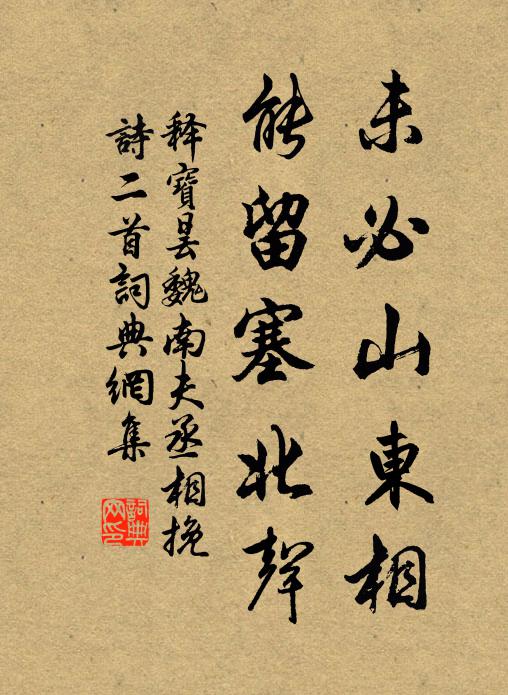 未必山東相
能留塞北聲
释寶昙魏南夫丞相挽
詩二首詞典網集
詞典網印